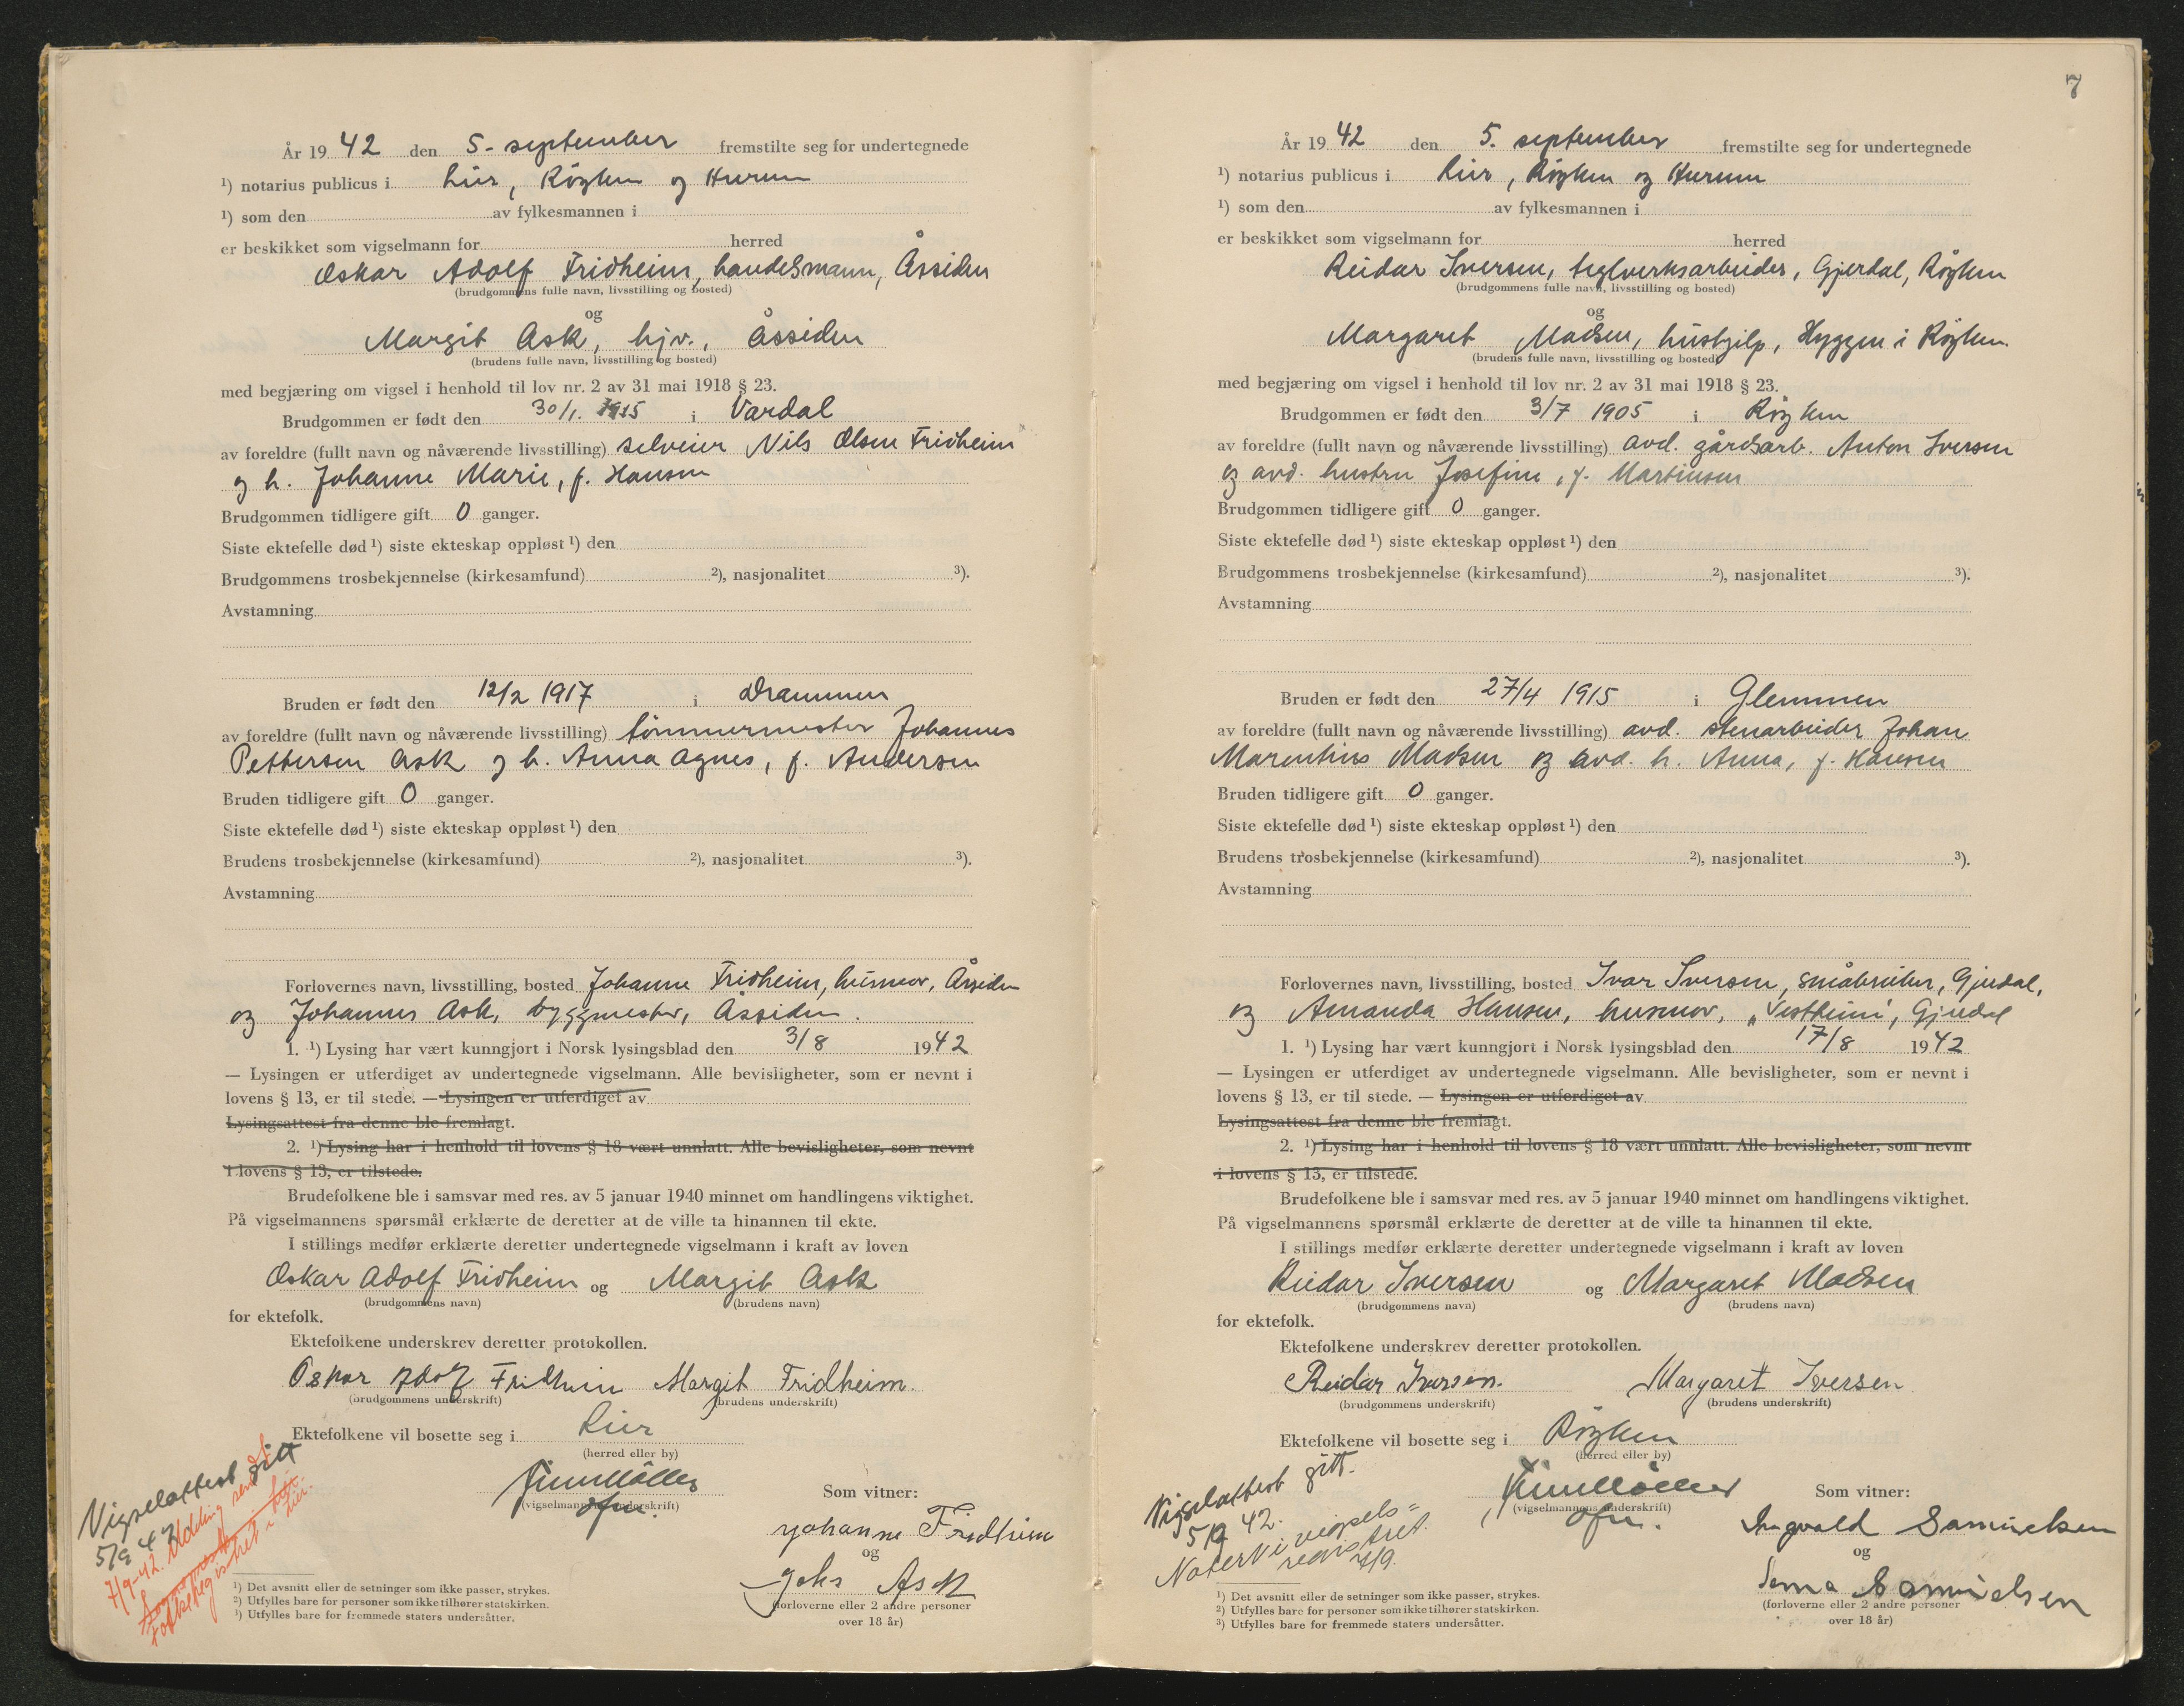 År 19 42 den 5. september fremstilte seg for undertegnede
¹) notarius publicus i Lier, Røyken og Hurum
¹) som den av fylkesmannen i
er beskikket som vigselmann for herred
Oskar Adolf Fridheim, handelsmann, Åssiden
(brudgommens fulle navn, livsstilling og bosted)
og
Margit Ask, hjv., Åssiden
(brudens fulle navn, livsstilling og bosted)
med begjæring om vigsel i henhold til lov nr. 2 av 31 mai 1918 § 23.
Brudgommen er født den 30/1. 1915 i Vardal
av foreldre (fullt navn og nåværende livsstilling) selveier Nils Olsen Fridheim
og h. Johanne Marie, f. Hansen
Brudgommen tidligere gift 0 ganger.
Siste ektefelle død ¹) siste ekteskap oppløst ¹) den
Brudgommens trosbekjennelse (kirkesamfund) ²), nasjonalitet ³).
Avstamning
Bruden er født den 12/2 1917 i Drammen
av foreldre (fullt navn og nåværende livsstilling) tømmermester Johannes
Pettersen Ask og h. Anna Agnes, f. Andersen
Bruden tidligere gift 0 ganger.
Siste ektefelle død ¹) siste ekteskap oppløst ¹) den
Brudens trosbekjennelse (kirkesamfund) ²), nasjonalitet ³).
Avstamning
Forlovernes navn, livsstilling, bosted Johanne Fridheim, husmor, Åssiden
og Johannes Ask, byggmester, Åssiden.
1. ¹) Lysing har vært kunngjort i Norsk lysingsblad den 3/8 1942
— Lysingen er utferdiget av undertegnede vigselmann. Alle bevisligheter, som er nevnt i
lovens § 13, er til stede. — Lysingen er utferdiget av
Lysingsattest fra denne ble fremlagt.
2. ¹) Lysing har i henhold til lovens § 18 vært unnlatt. Alle bevisligheter, som nevnt
i lovens § 13, er tilstede.
Brudefolkene ble i samsvar med res. av 5 januar 1940 minnet om handlingens viktighet.
På vigselmannens spørsmål erklærte de deretter at de ville ta hinannen til ekte.
I stillings medfør erklærte deretter undertegnede vigselmann i kraft av loven
Oskar Adolf Fridheim og Margit Ask
(brudgommens navn) (brudens navn)
for ektefolk.
Ektefolkene underskrev deretter protokollen.
Oskar Adolf Fridheim Margit Fridheim.
(brudgommens underskrift) (brudens underskrift)
Ektefolkene vil bosette seg i Lier
(herred eller by)
(vigselmannens underskrift)
Som vitner:
Johanne Fridheim
og
Johs Ask
(forloverne eller 2 andre personer
over 18 år)
Vigselattest gitt
5/9 42
7/9-42. Melding sendt
folkeregistret i Lier.
¹) Det avsnitt eller de setninger som ikke passer, strykes.
²) Utfylles bare for personer som ikke tilhører statskirken.
³) Utfylles bare for fremmede staters undersåtter.
7
År 19 42 den 5. september fremstilte seg for undertegnede
¹) notarius publicus i Lier, Røyken og Hurum
¹) som den av fylkesmannen i
er beskikket som vigselmann for herred
Reidar Iversen, teglverksarbeider, Gjerdal, Røyken
(brudgommens fulle navn, livsstilling og bosted)
og
Margaret Madsen, hushjelp, Hyggen i Røyken.
(brudens fulle navn, livsstilling og bosted)
med begjæring om vigsel i henhold til lov nr. 2 av 31 mai 1918 § 23.
Brudgommen er født den 3/7 1905 i Røyken
av foreldre (fullt navn og nåværende livsstilling) avd. gårdsarb. Anton Iversen
og avd. hustru Josefine, f. Martinsen
Brudgommen tidligere gift 0 ganger.
Siste ektefelle død ¹) siste ekteskap oppløst ¹) den
Brudgommens trosbekjennelse (kirkesamfund) ²), nasjonalitet ³).
Avstamning
Bruden er født den 27/4 1915 i Glemmen
av foreldre (fullt navn og nåværende livsstilling) avd. stenarbeider Johan
Marentius Madsen og avd. h. Anna, f. Hansen
Bruden tidligere gift 0 ganger.
Siste ektefelle død ¹) siste ekteskap oppløst ¹) den
Brudens trosbekjennelse (kirkesamfund) ²), nasjonalitet ³).
Avstamning
Forlovernes navn, livsstilling, bosted Ivar Iversen, småbruker, Gjerdal,
og Amanda Hansen, husmor, "Vestheim", Gjerdal
1. ¹) Lysing har vært kunngjort i Norsk lysingsblad den 17/8 1942
— Lysingen er utferdiget av undertegnede vigselmann. Alle bevisligheter, som er nevnt i
lovens § 13, er til stede. — Lysingen er utferdiget av
Lysingsattest fra denne ble fremlagt.
2. ¹) Lysing har i henhold til lovens § 18 vært unnlatt. Alle bevisligheter, som nevnt
i lovens § 13, er tilstede.
Brudefolkene ble i samsvar med res. av 5 januar 1940 minnet om handlingens viktighet.
På vigselmannens spørsmål erklærte de deretter at de ville ta hinannen til ekte.
I stillings medfør erklærte deretter undertegnede vigselmann i kraft av loven
Reidar Iversen og Margaret Madsen
(brudgommens navn) (brudens navn)
for ektefolk.
Ektefolkene underskrev deretter protokollen.
Reidar Iversen. Margaret Iversen
(brudgommens underskrift) (brudens underskrift)
Ektefolkene vil bosette seg i Røyken
(herred eller by)
(vigselmannens underskrift)
Som vitner:
Ingvald Samuelsen
og
Samuelsen
(forloverne eller 2 andre personer
over 18 år)
Vigselattest gitt.
5/9 42.
Notert i vigsels=
registret.
7/9.
¹) Det avsnitt eller de setninger som ikke passer, strykes.
²) Utfylles bare for personer som ikke tilhører statskirken.
³) Utfylles bare for fremmede staters undersåtter.